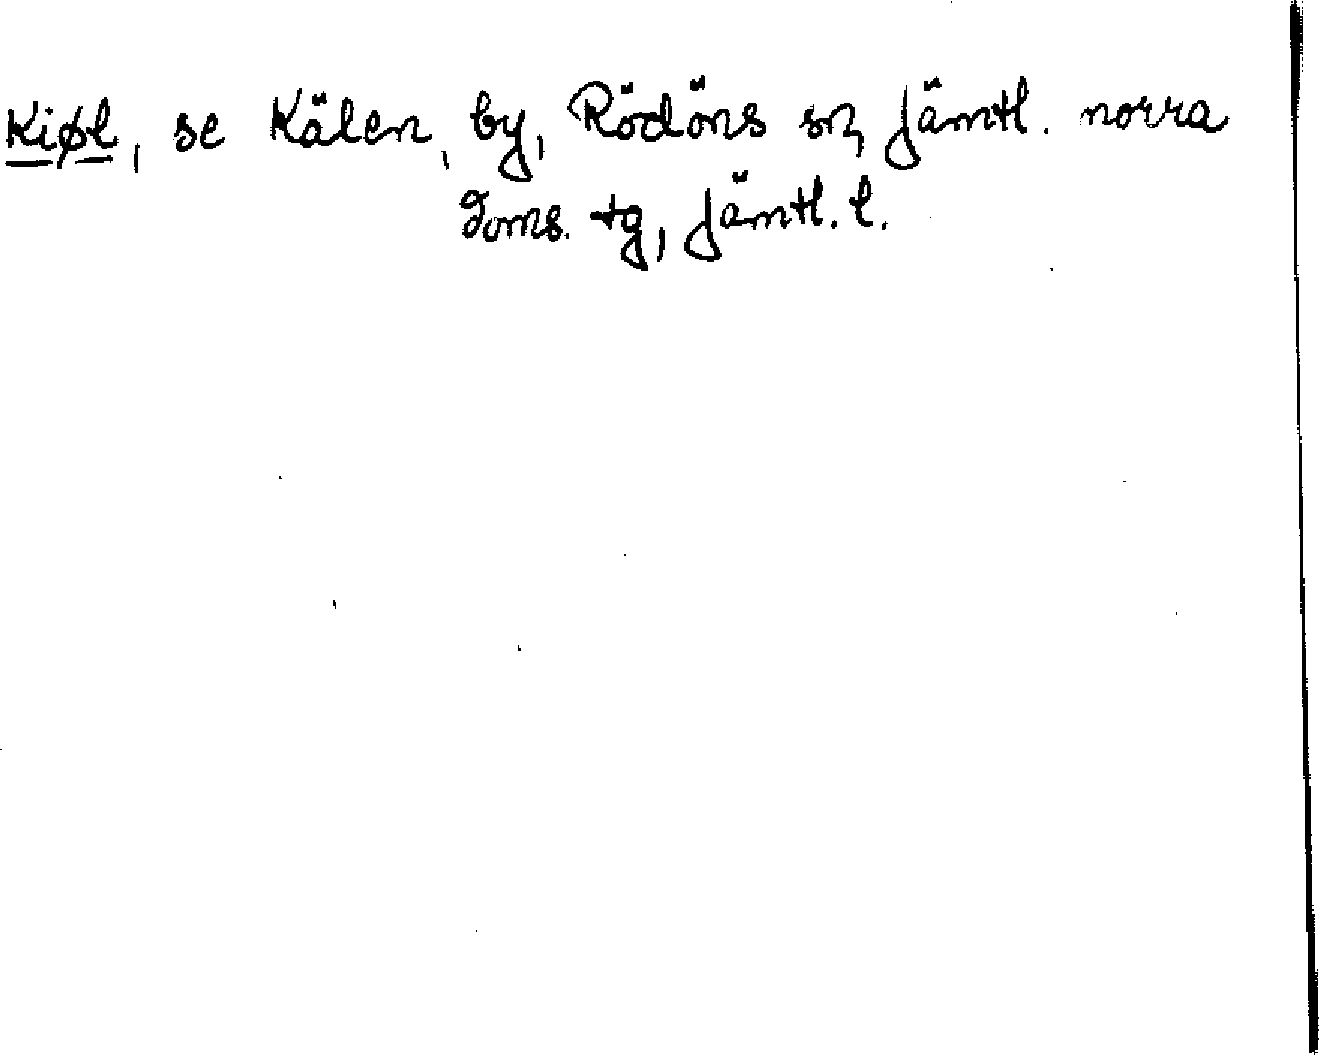 Kiøl, se Kälen, by, Rödöns sn, Jämtl. norra
doms. tg, Jämtl. l.